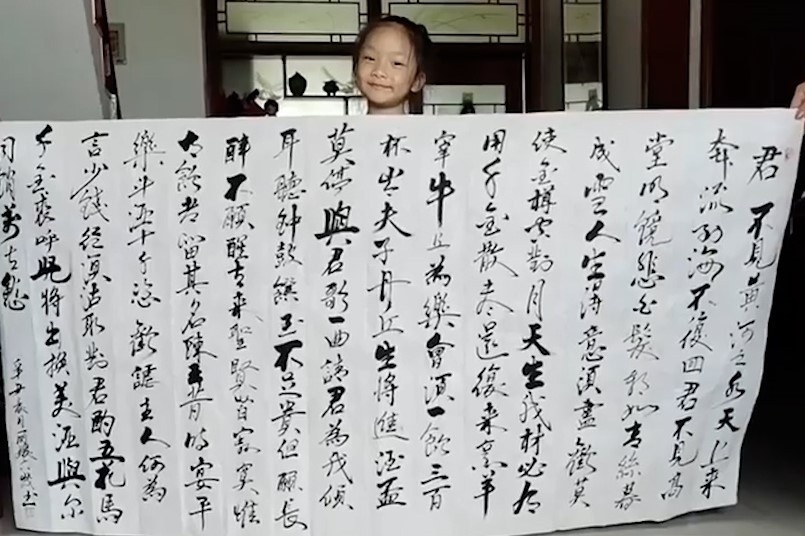 君不見黃河之水天上来
奔流到海不復回君不見高
堂明鏡悲白髮朝如青絲暮
成雪人生得意須盡歡莫
使金樽空對月天生我材必有
用千金散尽還復来烹羊
宰牛且為樂會須一飲三百
杯岑夫子丹丘生將進酒盃
莫停與君歌一曲請君為我傾
耳聽钟鼓饌玉不足貴但願長
醉不願醒古来聖賢皆寂寞惟
有飲者留其名陳王昔時宴平
樂斗酒十千恣歡謔主人何為
言少錢徑須沽取對君酌五花馬
千金裘呼兒將出換美酒與尔
同銷萬古愁
辛丑